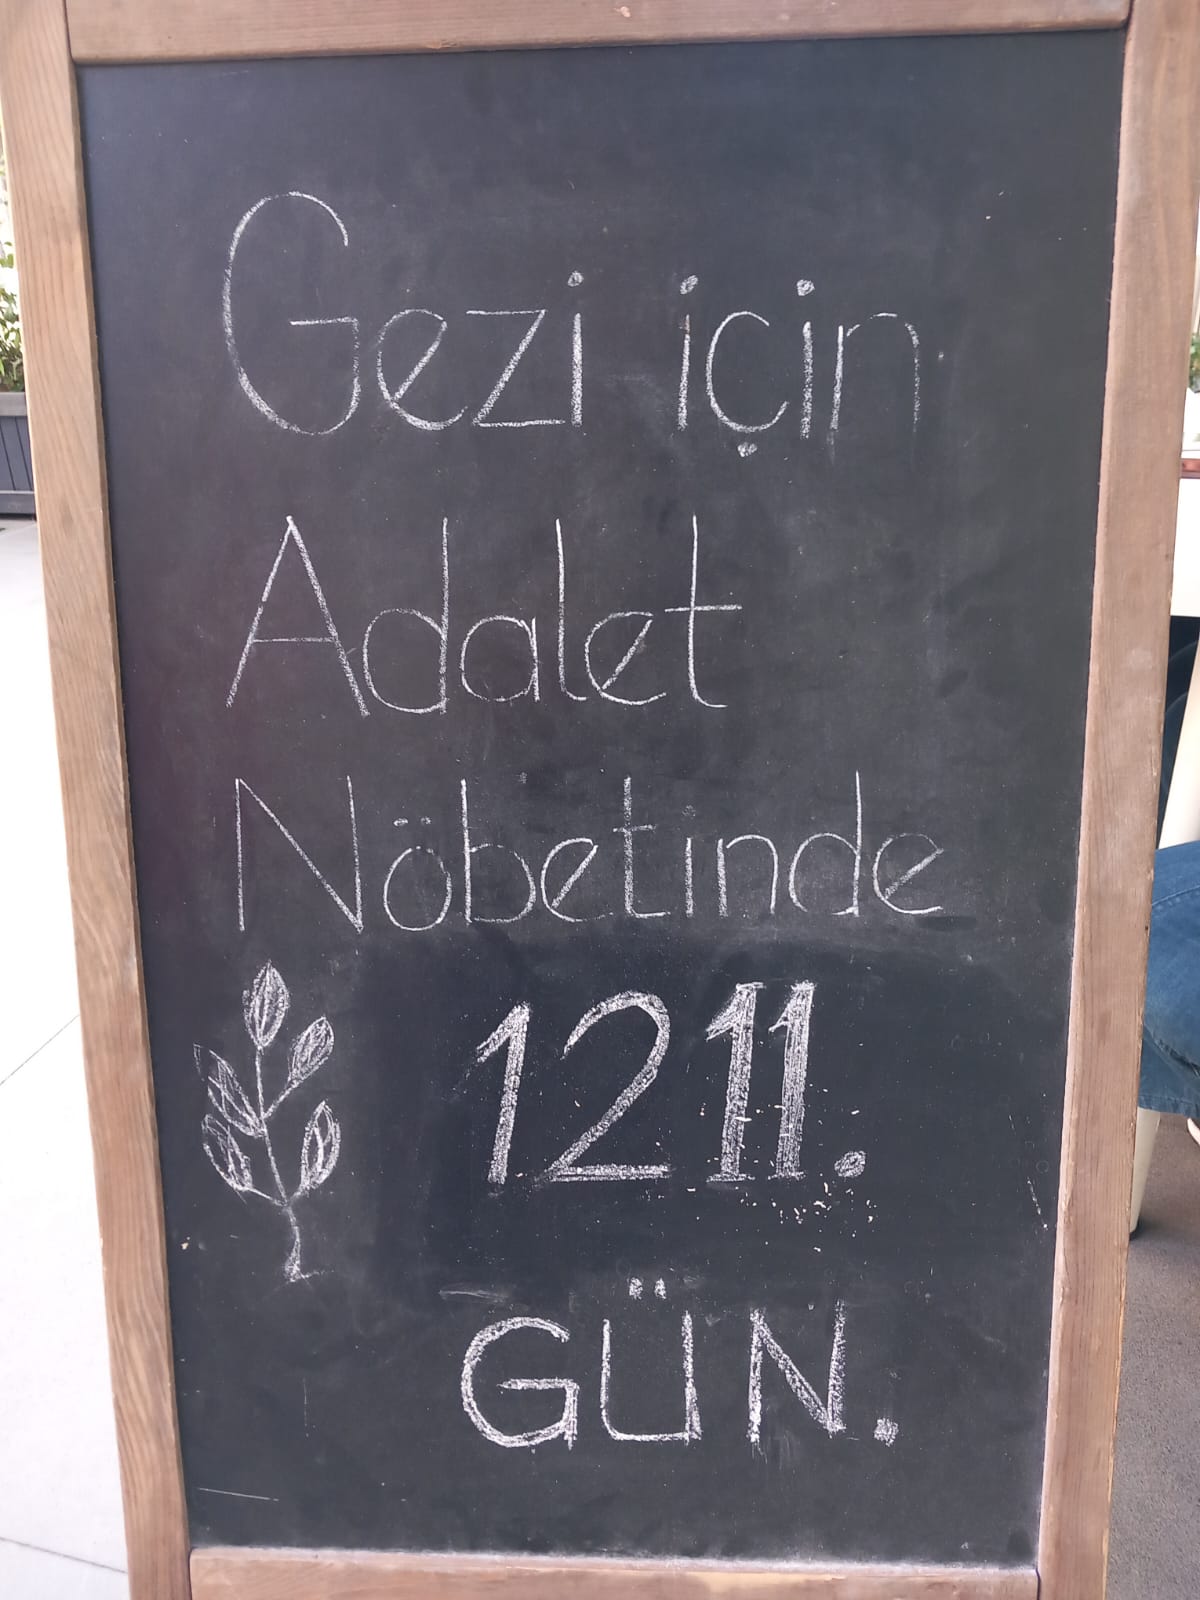 Gezi için
Adalet
Nöbetinde
1211.
GÜN.